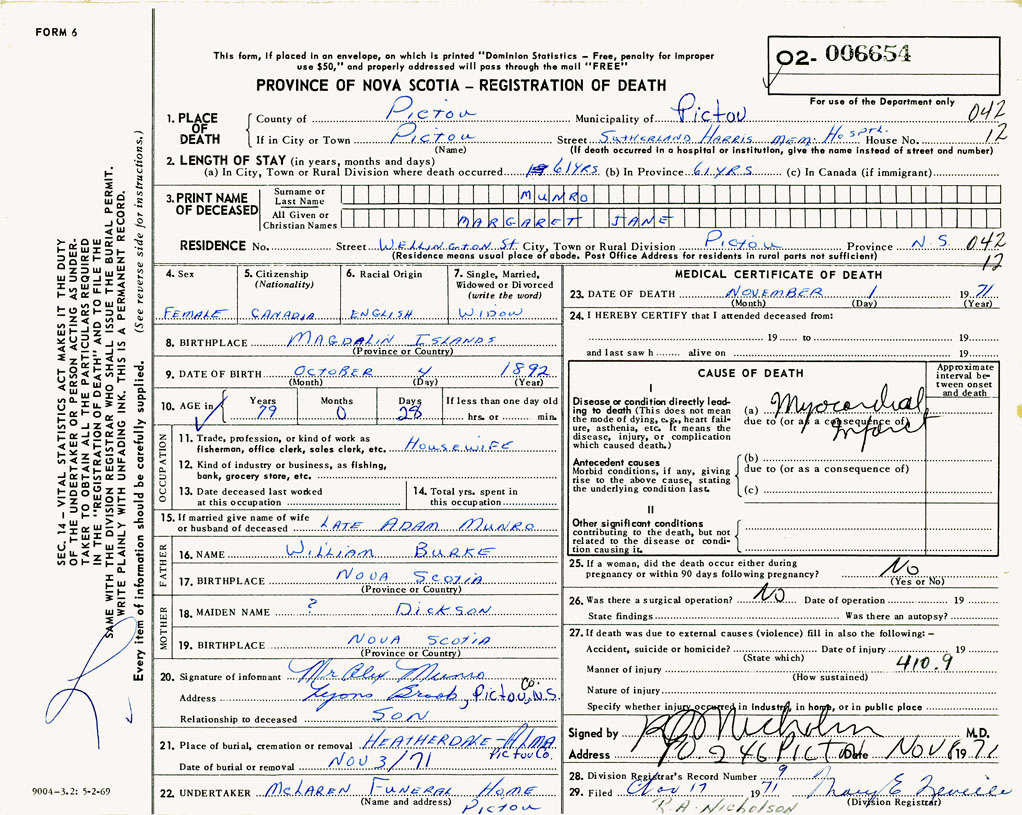 FORM 6
This form, if placed in an envelope, on which is printed "Dominion Statistics – Free, penalty for improper
use $50," and properly addressed will pass through the mail "FREE"
02- 006654
For use of the Department only
PROVINCE OF NOVA SCOTIA – REGISTRATION OF DEATH
1. PLACE OF DEATH
County of Pictou Municipality of Pictou 042
If in City or Town Pictou Street SUTHERLAND HARRIS MEM. HOSPTL. House No. 12
(Name) (If death occurred in a hospital or institution, give the name instead of street and number)
2. LENGTH OF STAY (in years, months and days)
(a) In City, Town or Rural Division where death occurred 61 YRS (b) In Province 61 YRS (c) In Canada (if immigrant)
3. PRINT NAME OF DECEASED
Surname or Last Name MUNRO
All Given or Christian Names MARGARETT JANE
RESIDENCE No. Street WELLINGTON St City, Town or Rural Division PICTOU Province N.S. 042
(Residence means usual place of abode. Post Office Address for residents in rural parts not sufficient) 12
4. Sex
FEMALE
5. Citizenship
(Nationality)
CANADIA
6. Racial Origin
ENGLISH
7. Single, Married,
Widowed or Divorced
(write the word)
WIDOW
8. BIRTHPLACE MAGDALIN ISLANDS
(Province or Country)
9. DATE OF BIRTH OCTOBER 4 1892
(Month) (Day) (Year)
10. AGE in Years Months Days If less than one day old
79 0 28 hrs. or min.
OCCUPATION
11. Trade, profession, or kind of work as
fisherman, office clerk, sales clerk, etc. HOUSEWIFE
12. Kind of industry or business, as fishing,
bank, grocery store, etc.
13. Date deceased last worked
at this occupation
14. Total yrs. spent in
this occupation
15. If married give name of wife
or husband of deceased LATE ADAM MUNRO
FATHER
16. NAME WILLIAM BURKE
17. BIRTHPLACE NOVA SCOTIA
(Province or Country)
MOTHER
18. MAIDEN NAME ? DICKSON
19. BIRTHPLACE NOVA SCOTIA
(Province or Country)
20. Signature of informant Mr Alex Munro
Address Lyons Brook, Pictou Co. N.S.
Relationship to deceased SON
21. Place of burial, cremation or removal HEATHERDALE-ALMA
Pictou Co.
Date of burial or removal NOV 3/71
22. UNDERTAKER McLAREN FUNERAL HOME
(Name and address) PICTOU
MEDICAL CERTIFICATE OF DEATH
23. DATE OF DEATH NOVEMBER 1 1971
(Month) (Day) (Year)
24. I HEREBY CERTIFY that I attended deceased from:
19 to 19
and last saw h alive on 19
CAUSE OF DEATH
Approximate
interval be-
tween onset
and death
I
Disease or condition directly lead-
ing to death (This does not mean
the mode of dying, e.g., heart fail-
ure, asthenia, etc. It means the
disease, injury, or complication
which caused death.)
(a) Myocardial
due to (or as a consequence of)
Infarct
Antecedent causes
Morbid conditions, if any, giving
rise to the above cause, stating
the underlying condition last.
(b)
due to (or as a consequence of)
(c)
II
Other significant conditions
contributing to the death, but not
related to the disease or condi-
tion causing it.
25. If a woman, did the death occur either during
pregnancy or within 90 days following pregnancy? No
(Yes or No)
26. Was there a surgical operation? No Date of operation 19
State findings Was there an autopsy?
27. If death was due to external causes (violence) fill in also the following: –
Accident, suicide or homicide? Date of injury 19
(State which)
Manner of injury 410.9
(How sustained)
Nature of injury
Specify whether injury occurred in industry, in home, or in public place
Signed by Nicholson M.D.
Address PO 246 PICTOU Date NOV 6 1971
28. Division Registrar's Record Number 9
29. Filed Nov 17 1971 Mary E Neville
(Division Registrar)
R. A. NICHOLSON
SEC. 14 – VITAL STATISTICS ACT MAKES IT THE DUTY
OF THE UNDERTAKER OR PERSON ACTING AS UNDER-
TAKER TO OBTAIN ALL THE PARTICULARS REQUIRED
IN THE "REGISTRATION OF DEATH" AND TO FILE THE
SAME WITH THE DIVISION REGISTRAR WHO SHALL ISSUE THE BURIAL PERMIT.
WRITE PLAINLY WITH UNFADING INK. THIS IS A PERMANENT RECORD.
Every item of information should be carefully supplied. (See reverse side for instructions.)
9004-3.2: 5-2-69